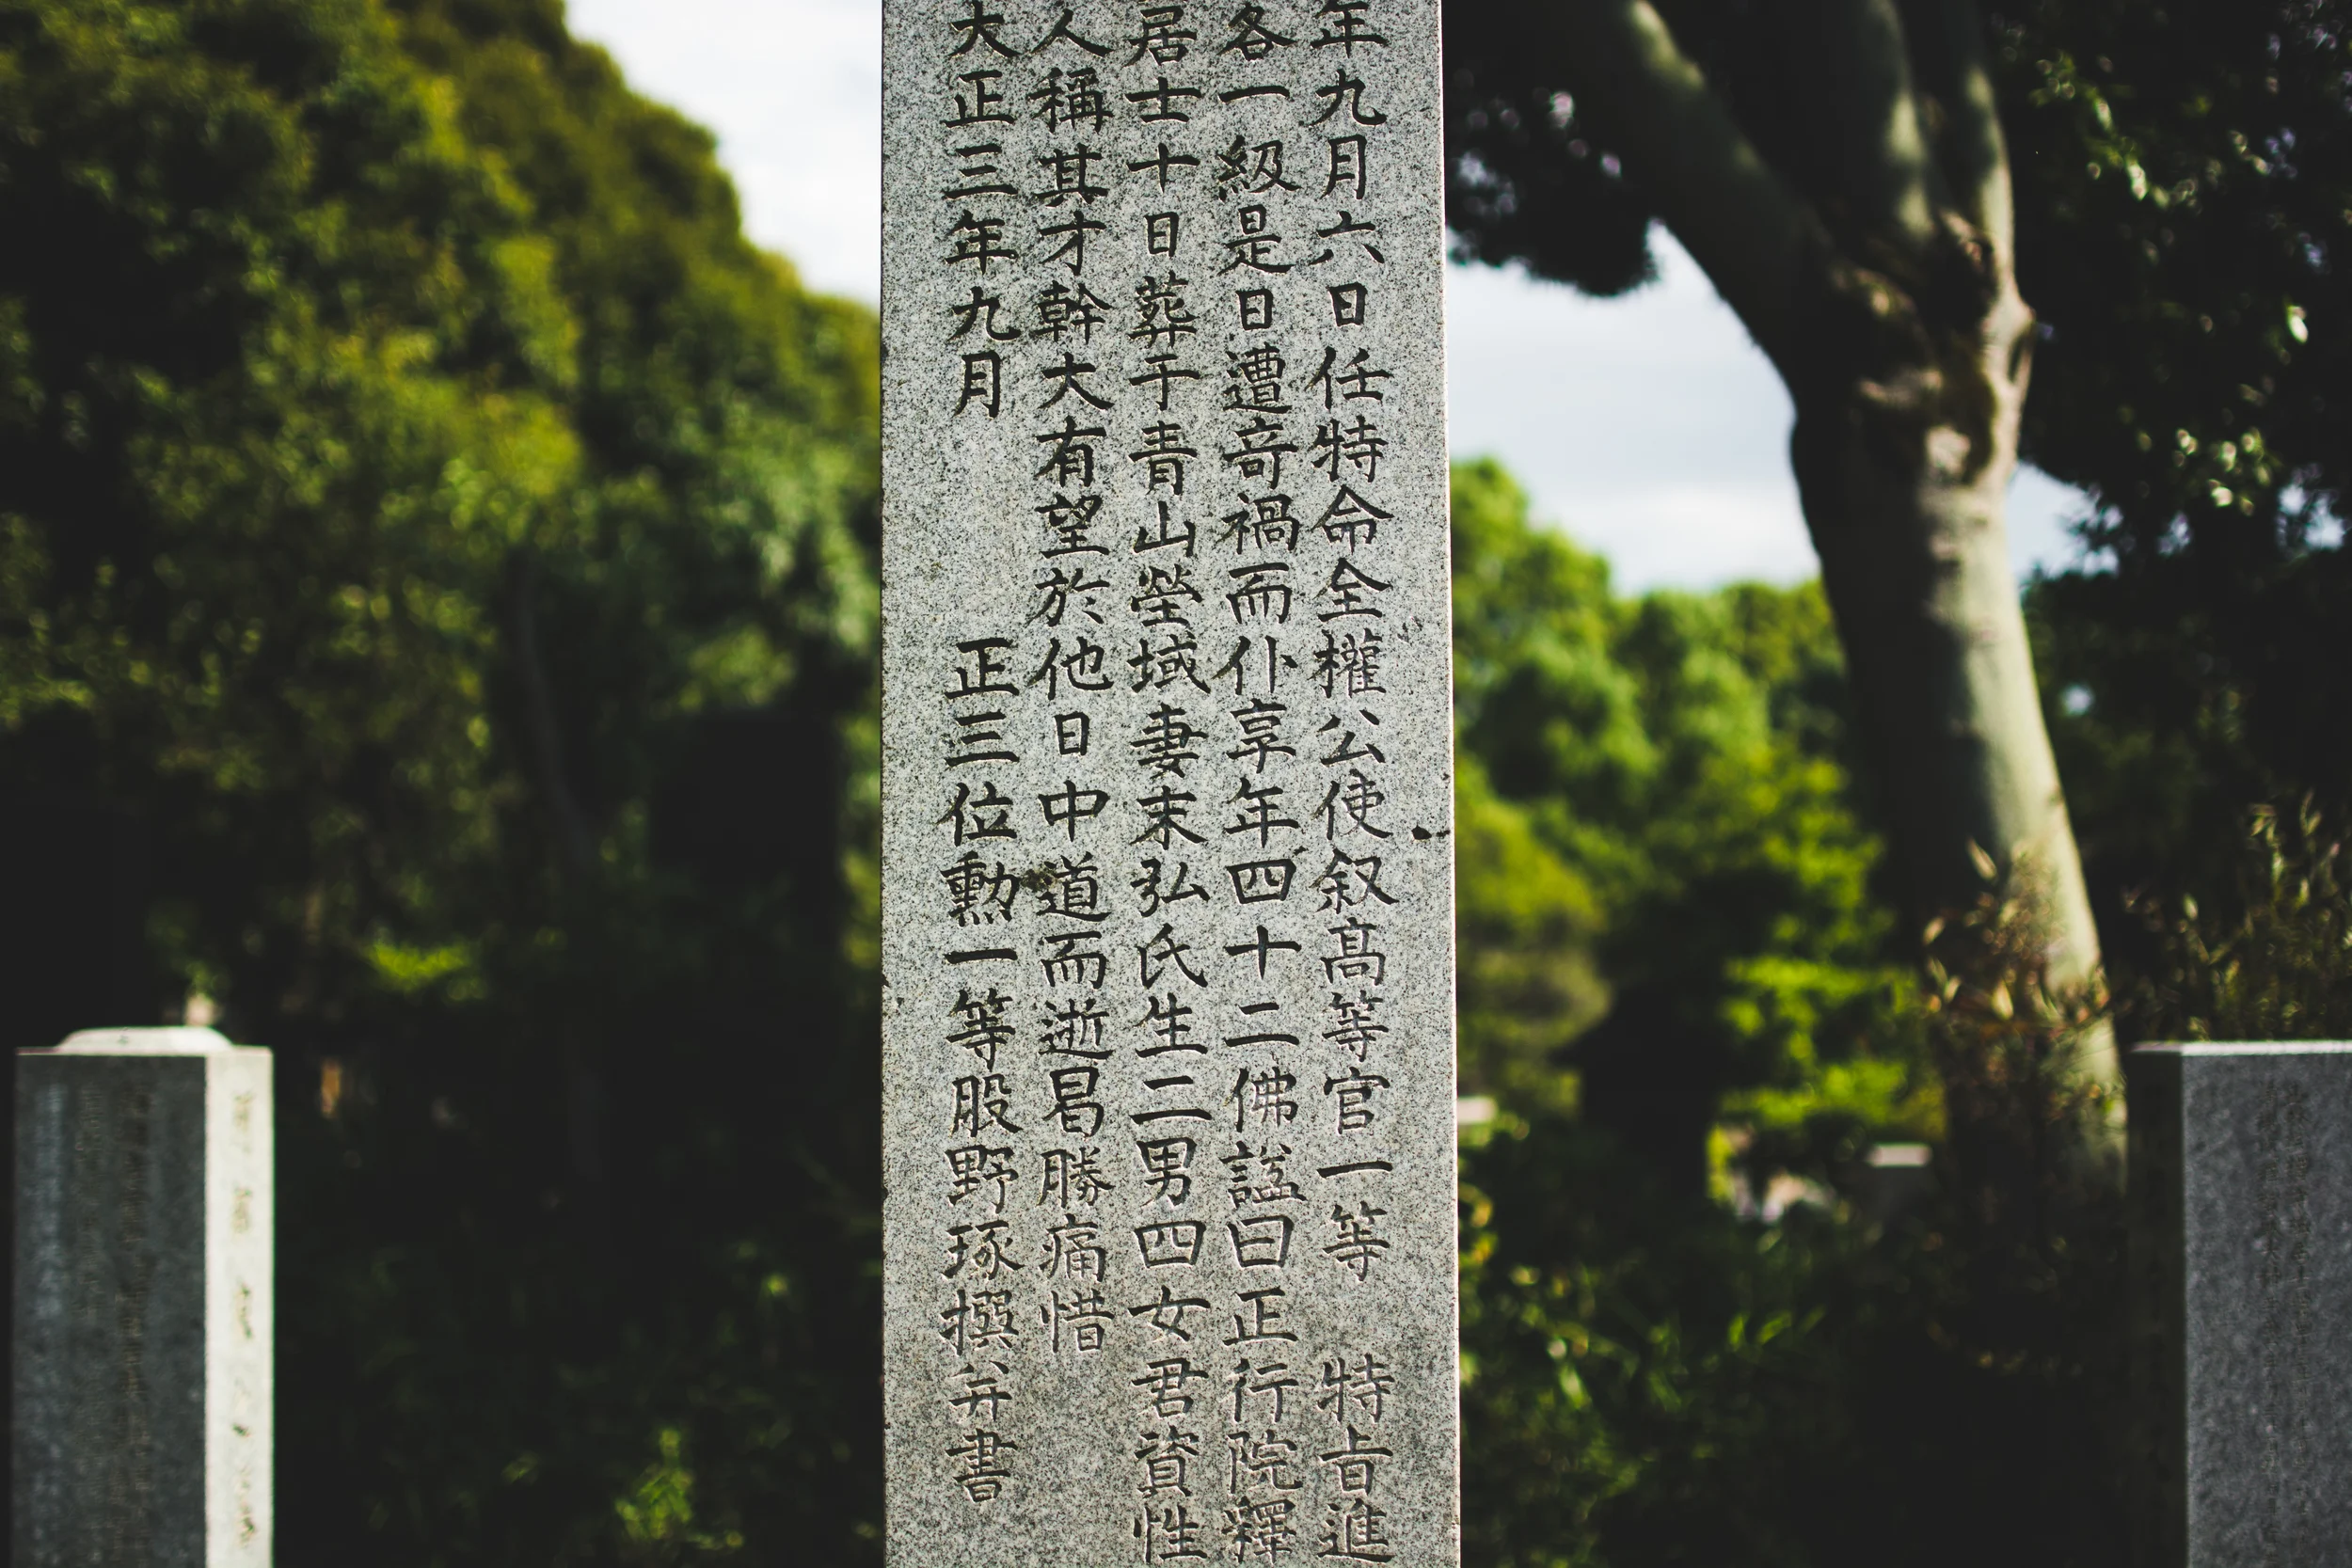 年九月六日任特命全權公使叙高等官一等　特旨進
各一級是日遭奇禍而仆享年四十二佛諡曰正行院釋
居士十日葬于青山塋域妻末弘氏生二男四女君資性
人稱其才幹大有望於他日中道而逝曷勝痛惜
大正三年九月　　　正三位勳一等股野琢撰并書